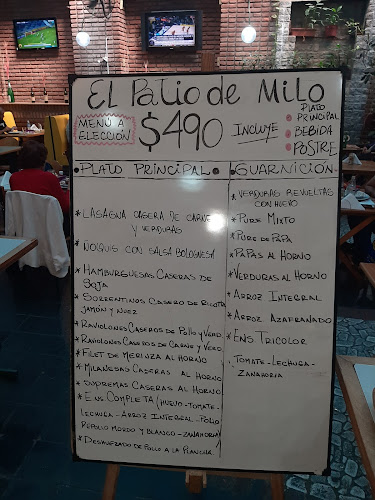 EL PATIO DE MILO
MENÚ A
ELECCIÓN
$490
INCLUYE
• PLATO
PRINCIPAL
• BEBIDA
• POSTRE
• PLATO PRINCIPAL •
* LASAGNA CASERA DE CARNE
Y VERDURAS
* ÑOIQUIS CON SALSA BOLOGNESA
* HAMBURGUESAS CASERAS DE
SOJA
* SORRENTINOS CASERO DE RICOTA
JAMÓN Y NUEZ
* RAVIOLONES CASEROS DE POLLO Y VERD
* RAVIOLONES CASEROS DE CARNE Y VERD
* FILET DE MERLUZA AL HORNO
* MILANESAS CASERAS AL HORNO
* SUPREMAS CASERAS AL HORNO
* ENS COMPLETA (HUEVO - TOMATE -
LECHUGA - ARROZ INTEGRAL - POLLO
REPOLLO MORDO Y BLANCO - ZANAHORIA)
* DESHUEZADO DE POLLO A LA PLANCHA
GUARNICIÓN •
* VERDURAS REVUELTAS
CON HUEVO
* PURE MIXTO
* PURE DE PAPA
* PAPAS AL HORNO
* VERDURAS AL HORNO
* ARROZ INTEGRAL
* ARROZ AZAFRANADO
* ENS TRICOLOR
TOMATE - LECHUGA -
ZANAHORIA